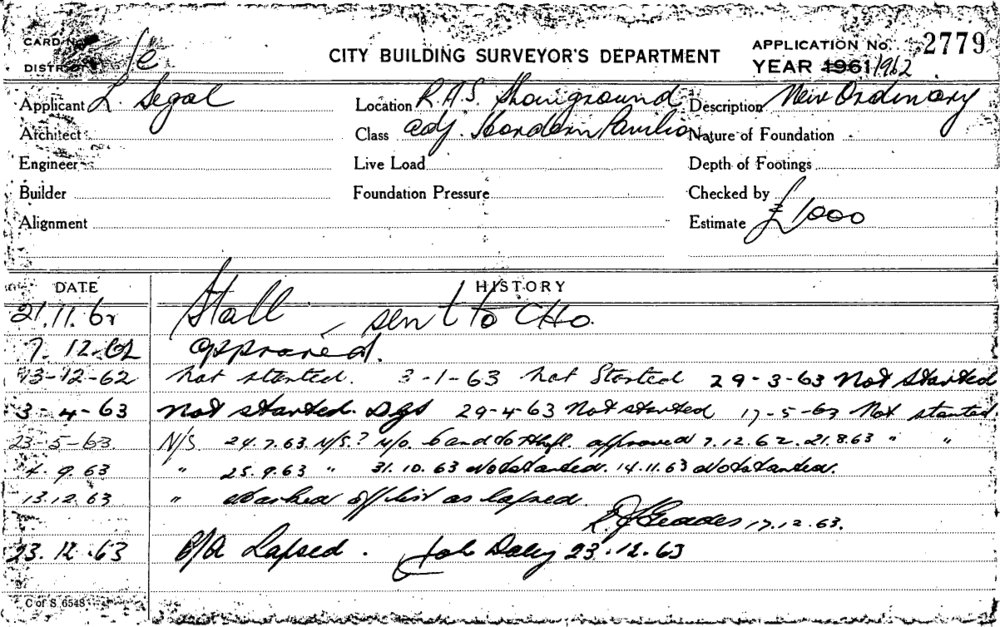 CARD No. 1e
DISTRICT
CITY BUILDING SURVEYOR'S DEPARTMENT
APPLICATION No. 2779
YEAR 1961/1962
Applicant L. Segal
Location R.A.S. Showground
Description New Ordinary
Architect
Class adj. Hordern Pavilion
Nature of Foundation
Engineer
Live Load
Depth of Footings
Builder
Foundation Pressure
Checked by
Alignment
Estimate £1000
DATE HISTORY
21.11.62 Stall - sent to CHO.
7.12.62 approved.
13-12-62 not started. 3-1-63 not Started 29-3-63 Not started
3-4-63 Not started. Dgs 29-4-63 Not started 17-5-63 Not started.
23-5-63. N/S. 24.7.63. N/S.? approved 7.12.62. 21.8.63 " "
4.9.63 " 25.9.63 " 31.10.63 Not started. 14.11.63 Not started.
13.12.63 " Marked off list as lapsed.
17.12.63.
23.12.63 B/A Lapsed. Daley 23-12-63
C of S 6548